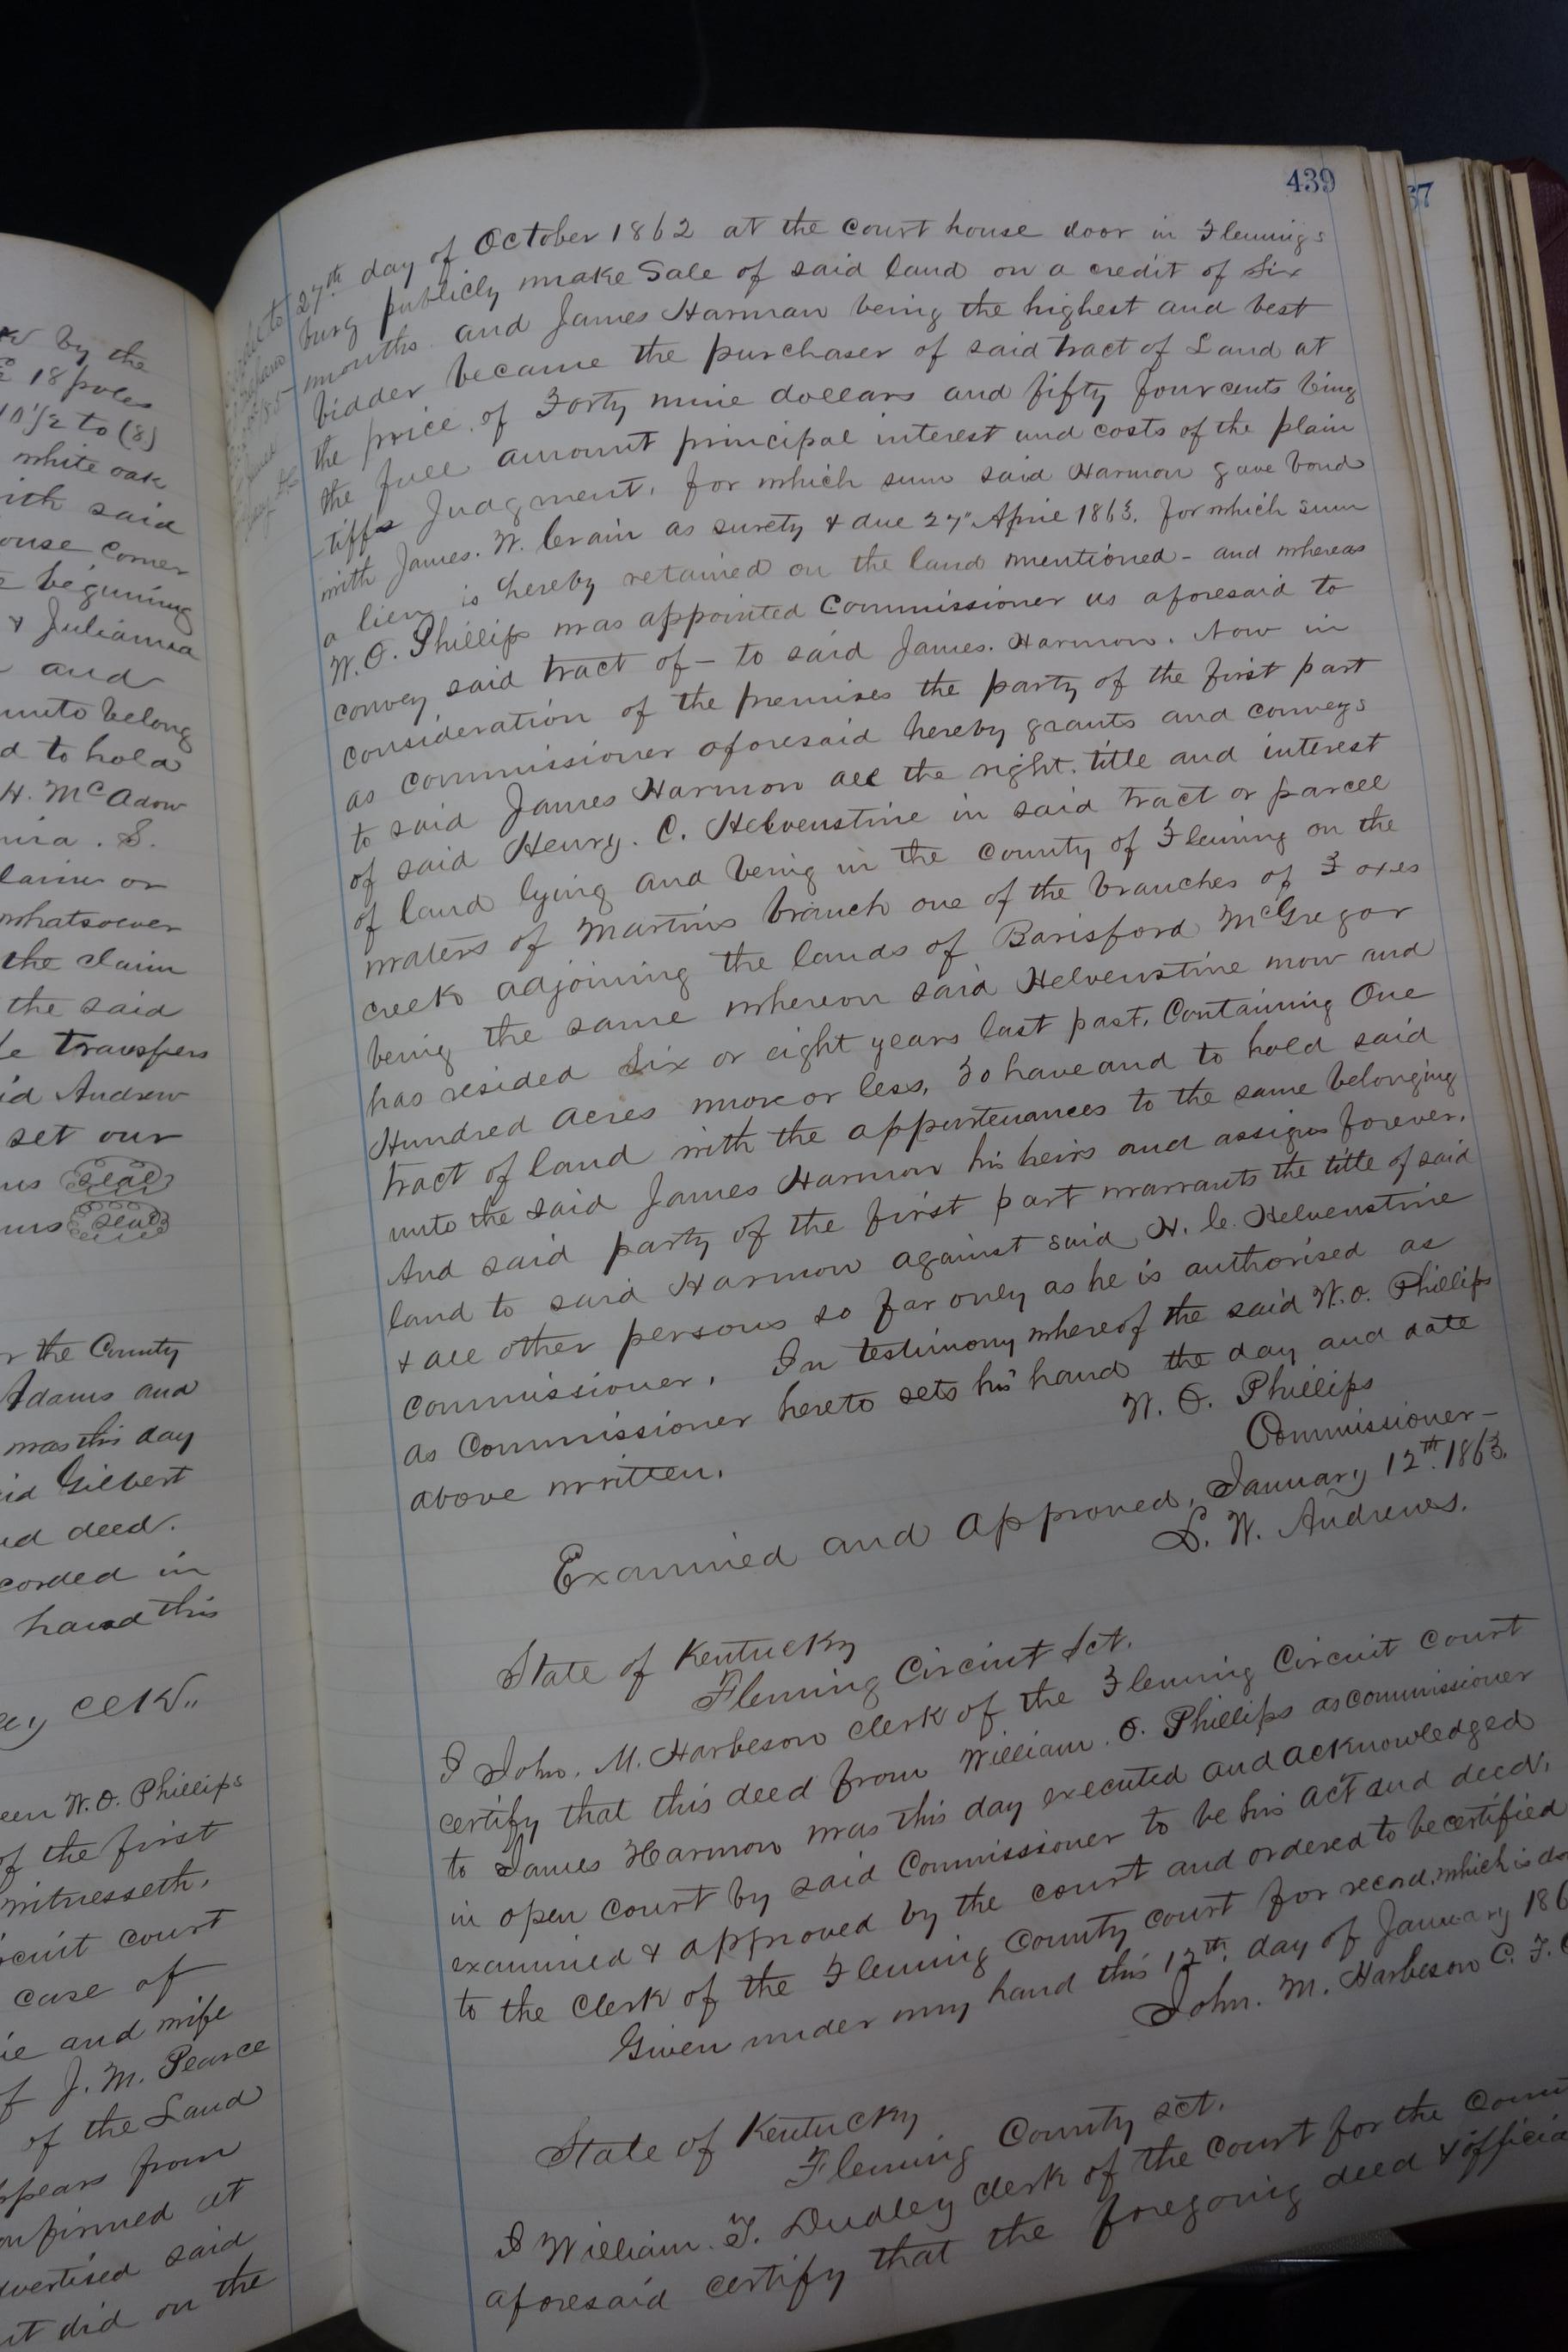 w by the
18 poles
10 1/2 to (8)
white oak
ith said
ouse corner
e beginning
& Julianna
and
unto belong
d to hold
H. McAdow
S.
laim or
whatsoever
the claim
the said
le transfers
id Andrew
set our
seal
seal
r the County
Adams and
was this day
id Gilbert
nd deed.
corded in
hand this
clk"
een W. O. Phillips
of the first
witnesseth,
rcuit court
case of
ie and wife
of J. M. Pearce
of the Land
ppears from
onfirmed at
dvertised said
it did on the
439
37
27th day of October 1862 at the court house door in Flemings
burg publicly make Sale of said land on a credit of Six
months and James Harman being the highest and best
bidder became the purchaser of said tract of Land at
the price of Forty nine dollars and fifty four cents being
the full amount principal interest and costs of the plain
tiffs Judgment, for which sum said Harmon gave bond
with James. W. Crain as surety & due 27" April 1863. for which sum
a lien is hereby retained on the land mentioned - and whereas
W. O. Phillips was appointed Commissioner as aforesaid to
convey said tract of - to said James. Harmon. Now in
consideration of the premises the party of the first part
as commissioner aforesaid hereby grants and conveys
to said James Harmon all the right, title and interest
of said Henry. C. Helvenstine in said tract or parcel
of land lying and being in the County of Fleming on the
waters of Martins branch one of the branches of Foxes
creek adjoining the lands of Barisford McGregor
being the same whereon said Helvenstine now and
has resided Six or eight years last past, Containing One
Hundred acres more or less, To have and to hold said
tract of land with the appurtenances to the same belonging
unto the said James Harmon his heirs and assigns forever.
And said party of the first part warrants the title of said
land to said Harmon against said H. C. Helvenstine
& all other persons so far only as he is authorised as
commissioner, In testimony whereof the said W. O. Phillips
as Commissioner hereto sets his hand the day and date
above written.
W. O. Phillips
Commissioner -
Examined and approved, January 12th. 1863.
L. W. Andrews.
State of Kentucky
Fleming Circuit Sct.
I John. M. Harbeson clerk of the Fleming Circuit Court
certify that this deed from William. O. Phillips as commissioner
to James Harmon was this day executed and acknowledged
in open court by said Commissioner to be his act and deed,
examined & approved by the court and ordered to be certified
to the Clerk of the Fleming County court for record, which is do
Given under my hand this 12th. day of January 186
John. M. Harbeson C. F. C
State of Kentucky
Fleming County sct.
I William. T. Dudley clerk of the court for the Coun
aforesaid certify that the foregoing deed & officia